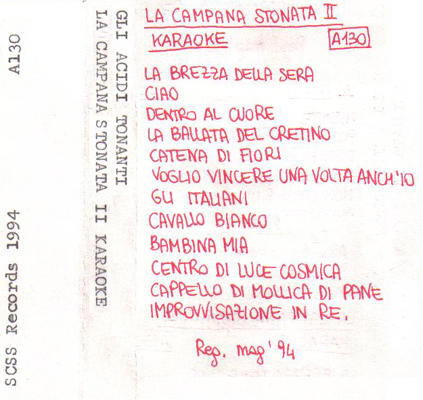 A130
SCSS Records 1994
GLI ACIDI TONANTI
LA CAMPANA STONATA II KARAOKE
LA CAMPANA STONATA II
KARAOKE A130
LA BREZZA DELLA SERA
CIAO
DENTRO AL CUORE
LA BALLATA DEL CRETINO
CATENA DI FIORI
VOGLIO VINCERE UNA VOLTA ANCH'IO
GLI ITALIANI
CAVALLO BIANCO
BAMBINA MIA
CENTRO DI LUCE COSMICA
CAPPELLO DI MOLLICA DI PANE
IMPROVVISAZIONE IN RE.
Reg. mag '94